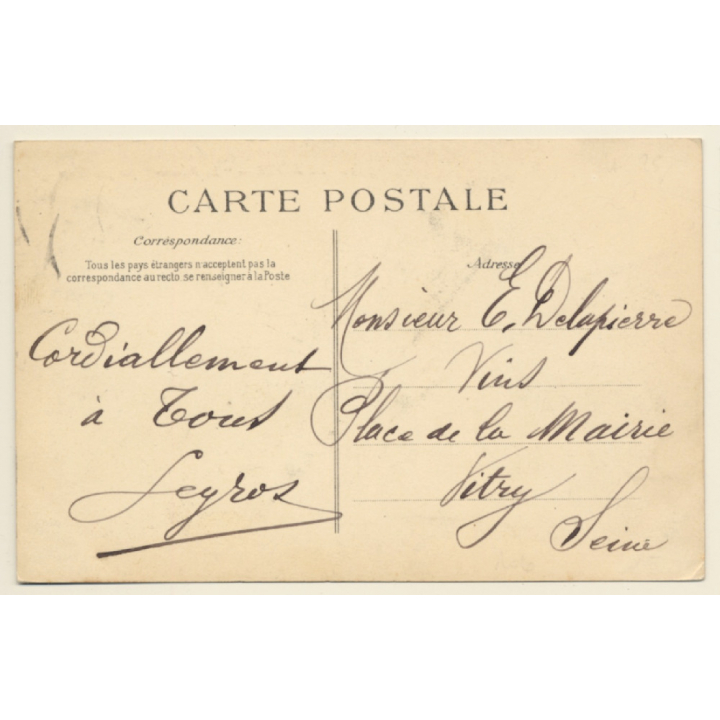 CARTE POSTALE
Corréspondance:
Tous les pays étrangers n'acceptent pas la
correspondance au recto, se renseigner à la Poste
Cordiallement
à Tous
Leyros
Adresse
Monsieur E. Delapierre
Vins
Place de la Mairie
Vitry
Seine